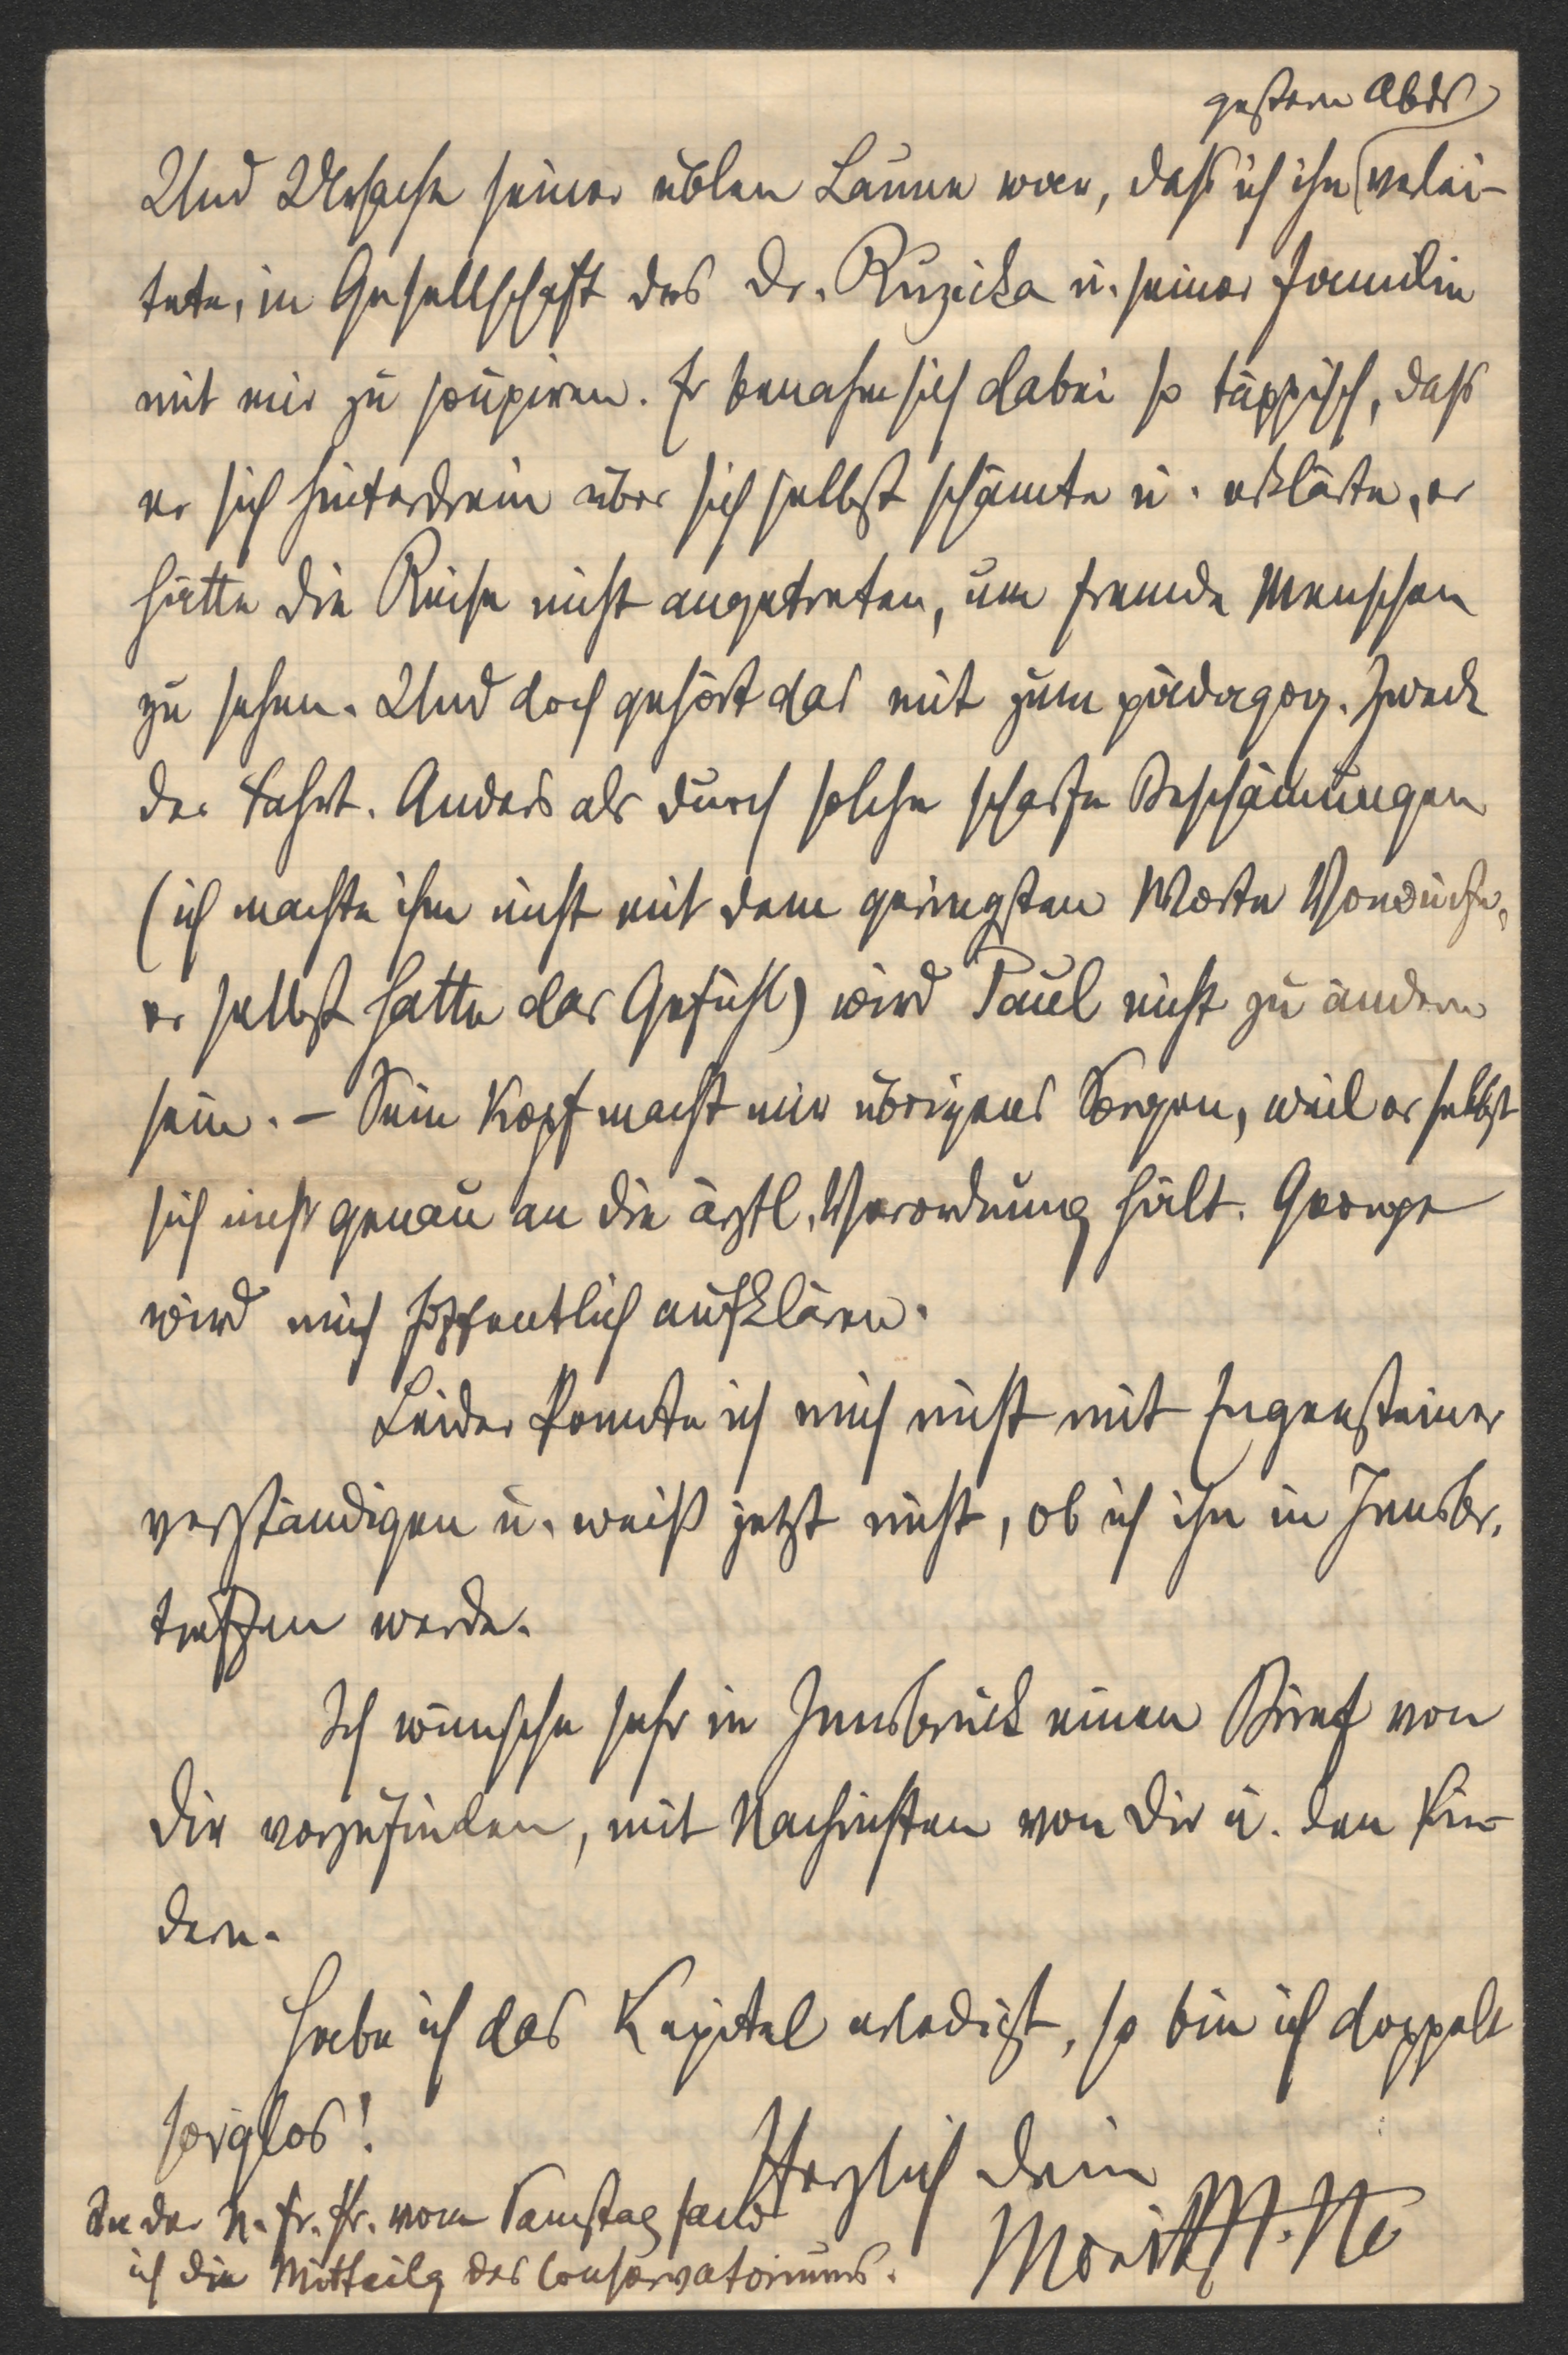 gestern Abds
Und Ursache seiner üblen Laune war, daß ich ihn verlei-
tete, in Gesellschaft des Dr. Ruzicka u. seiner Familie
mit mir zu soupiren. Er benahm sich dabei so täppisch, daß
er sich hinterdrein über sich selbst schämte u. erklärte, er
hätte die Reise nicht angetreten, um fremde Menschen
zu sehen. Und doch gehört das mit zum pädagog. Zweck
der Fahrt. Anders als durch solche scharfe Beschämungen
(ich machte ihm nicht mit dem geringsten Worte Vorwürfe,
er selbst hatte das Gefühl) wird Paul nicht zu ändern
sein. – Sein Kopf macht mir übrigens Sorgen, weil er selbst
sich nicht genau an die ärztl. Verordnung hält. George
wird mich hoffentlich aufklären.
Leider konnte ich mich nicht mit Engensteiner
verständigen u. weiß jetzt nicht, ob ich ihn in Innsbr.
treffen werde.
Ich wünsche sehr in Innsbruck einen Brief von
Dir vorzufinden, mit Nachrichten von Dir u. den Kin-
dern.
Habe ich das Kapitel erledigt, so bin ich doppelt
sorglos!
Herzlich Dein
Moritz M. Ne
In der N. Fr. Pr. vom Samstag fand
ich die Mitteilg des Conservatoriums.